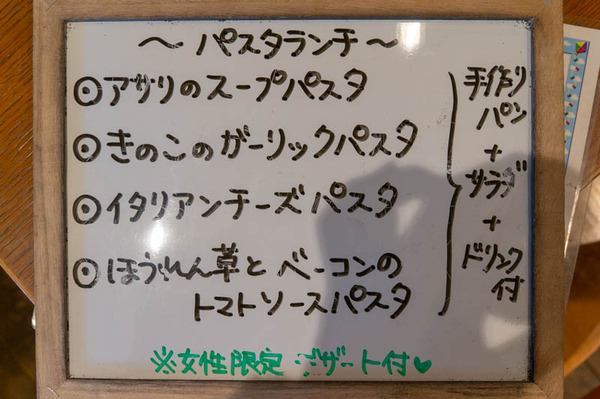 ～パスタランチ～
◎アサリのスープパスタ
◎きのこのガーリックパスタ
◎イタリアンチーズパスタ
◎ほうれん草とベーコンの
トマトソースパスタ
手作り
パン
+
サラダ
+
ドリンク
付
※女性限定 デザート付♥